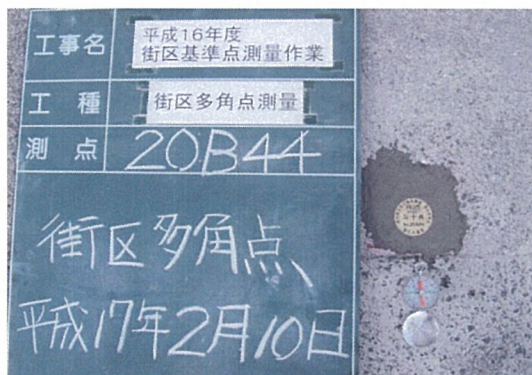 工事名
平成16年度
街区基準点測量作業
工種
街区多角点測量
測点
20B44
街区多角点、
平成17年2月10日